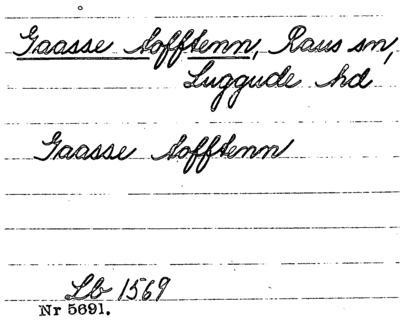 Gaasse tofftenn, Raus sn,
Luggude hd
Gaasse tofftenn
Lb 1569
Nr 5691.